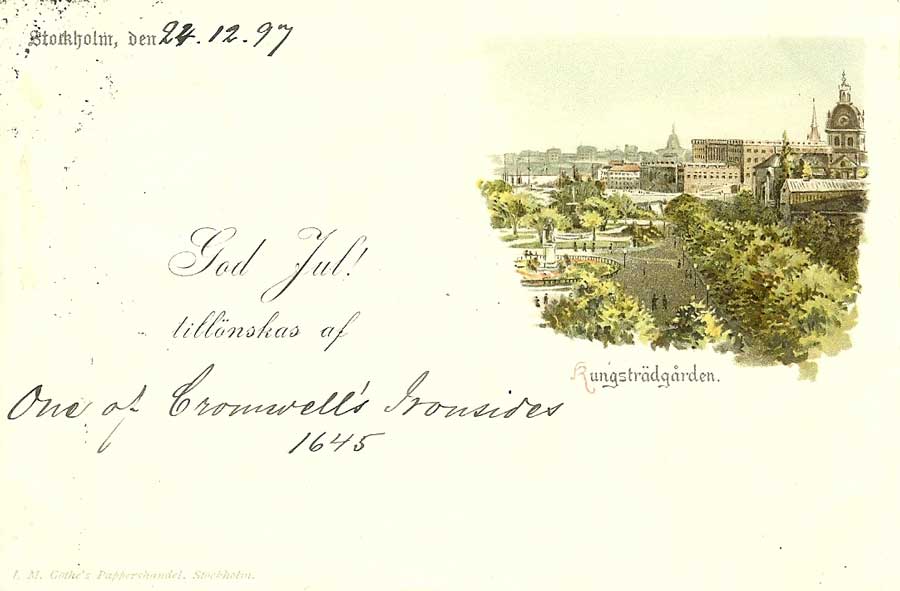 Stockholm, den 24.12.97
God Jul!
tillönskas af
One of Cromwell's Ironsides
1645
Kungsträdgården.
L. M. Göthe's Pappershandel, Stockholm.